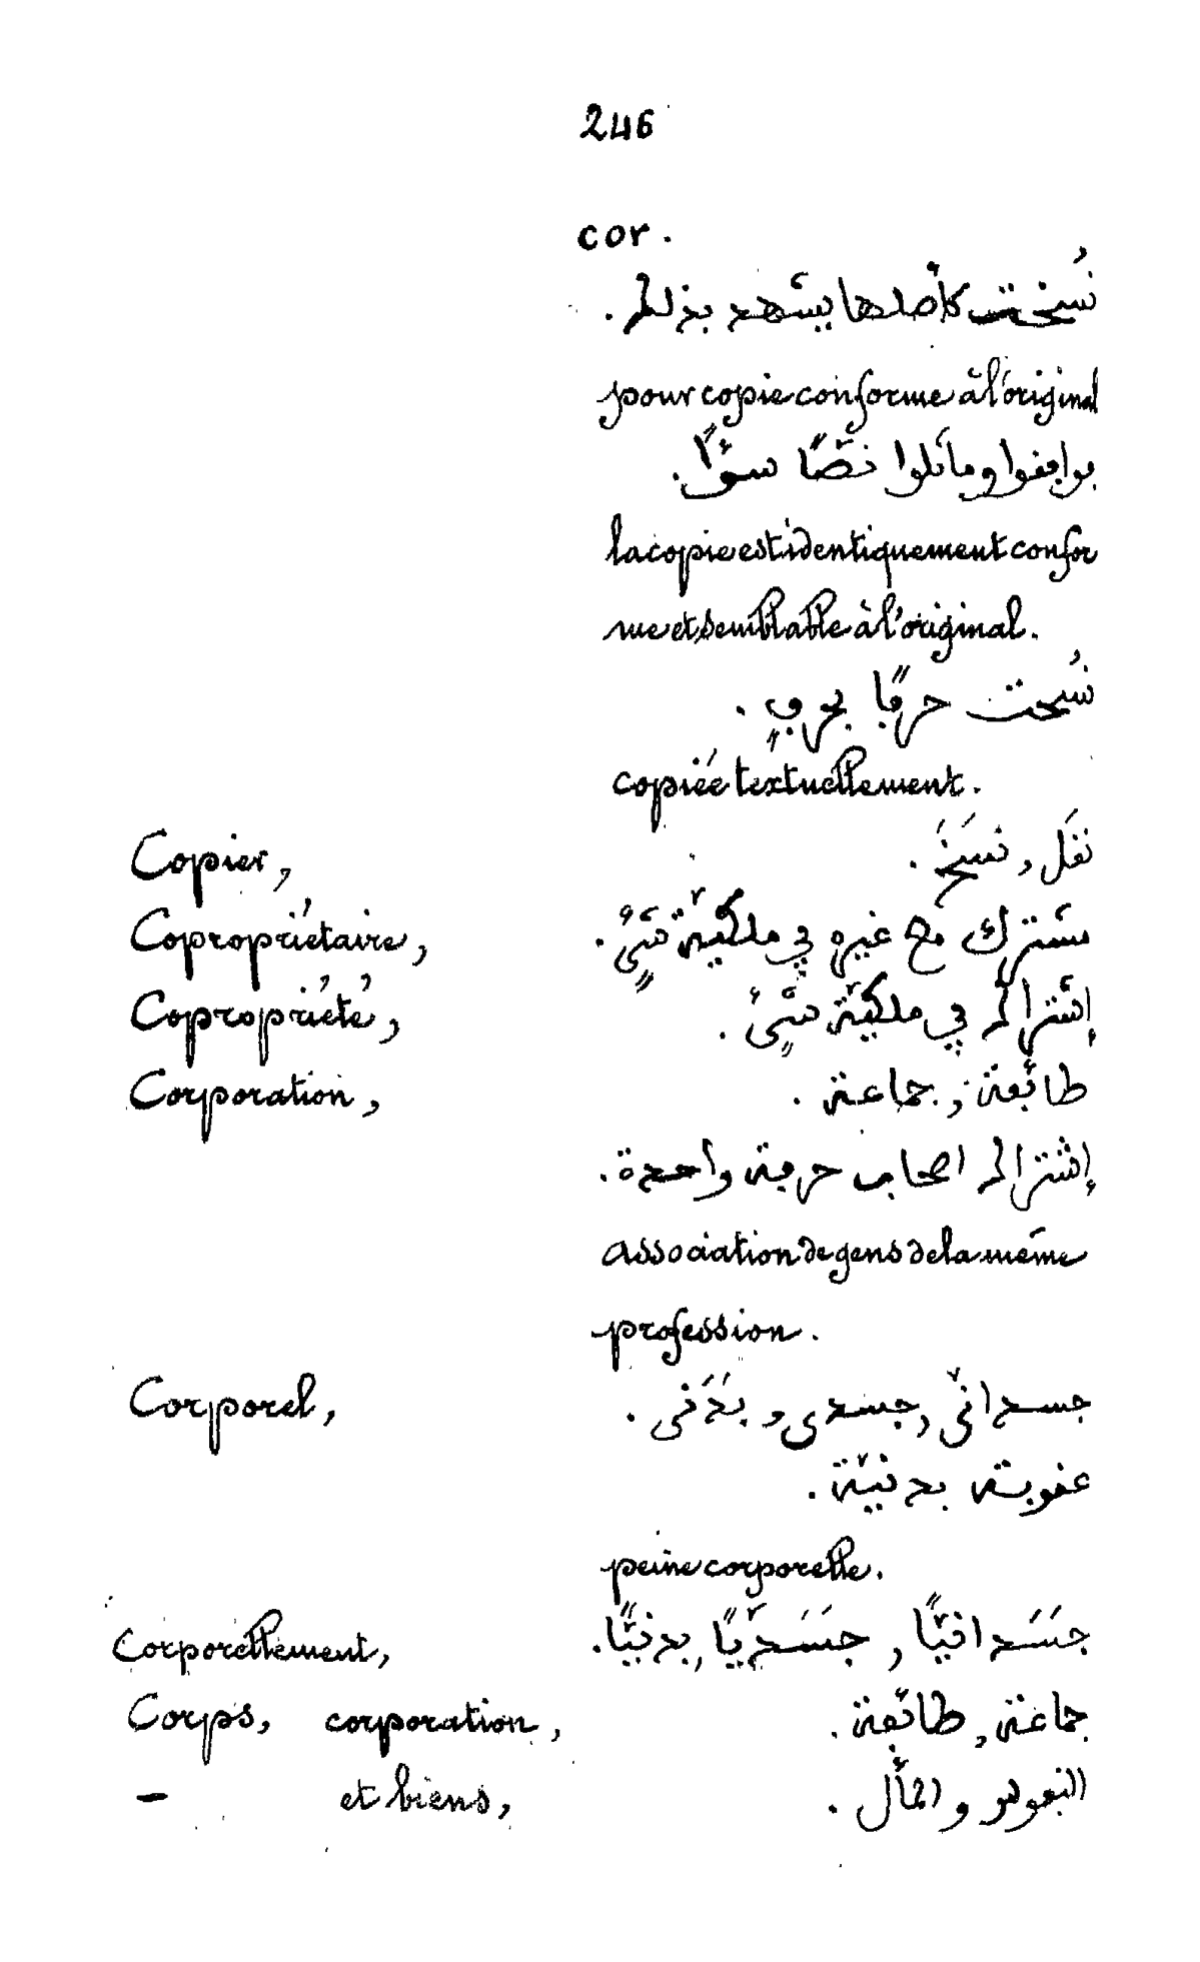 246
cor.
نُسخت كأصلها يشهد بذلك.
pour copie conforme à l'original
بوافقوا وماثلوا نصًّا سوًا.
la copie est identiquement confor
me et semblable à l'original.
نُسخت حرفًا بحرفٍ.
copiée textuellement.
Copier, نقَل, نسَخَ.
Copropriétaire, مشترك مع غيره في ملكيّة شَيْءٍ.
Copropriété, إشتراك في ملكيّة شَيْءٍ.
Corporation, طائفة, جماعة.
إشتراك اصحاب حرفة واحدة.
association de gens de la même
profession.
Corporel, جسدانيّ, جسدى و بَدَنى.
عقوبة بدنيّة.
peine corporelle.
Corporellement, جَسَدانيًّا, جَسَديًّا, بدنيًّا.
Corps, corporation, جماعة, طائفة.
— et biens, النفوس والمال.